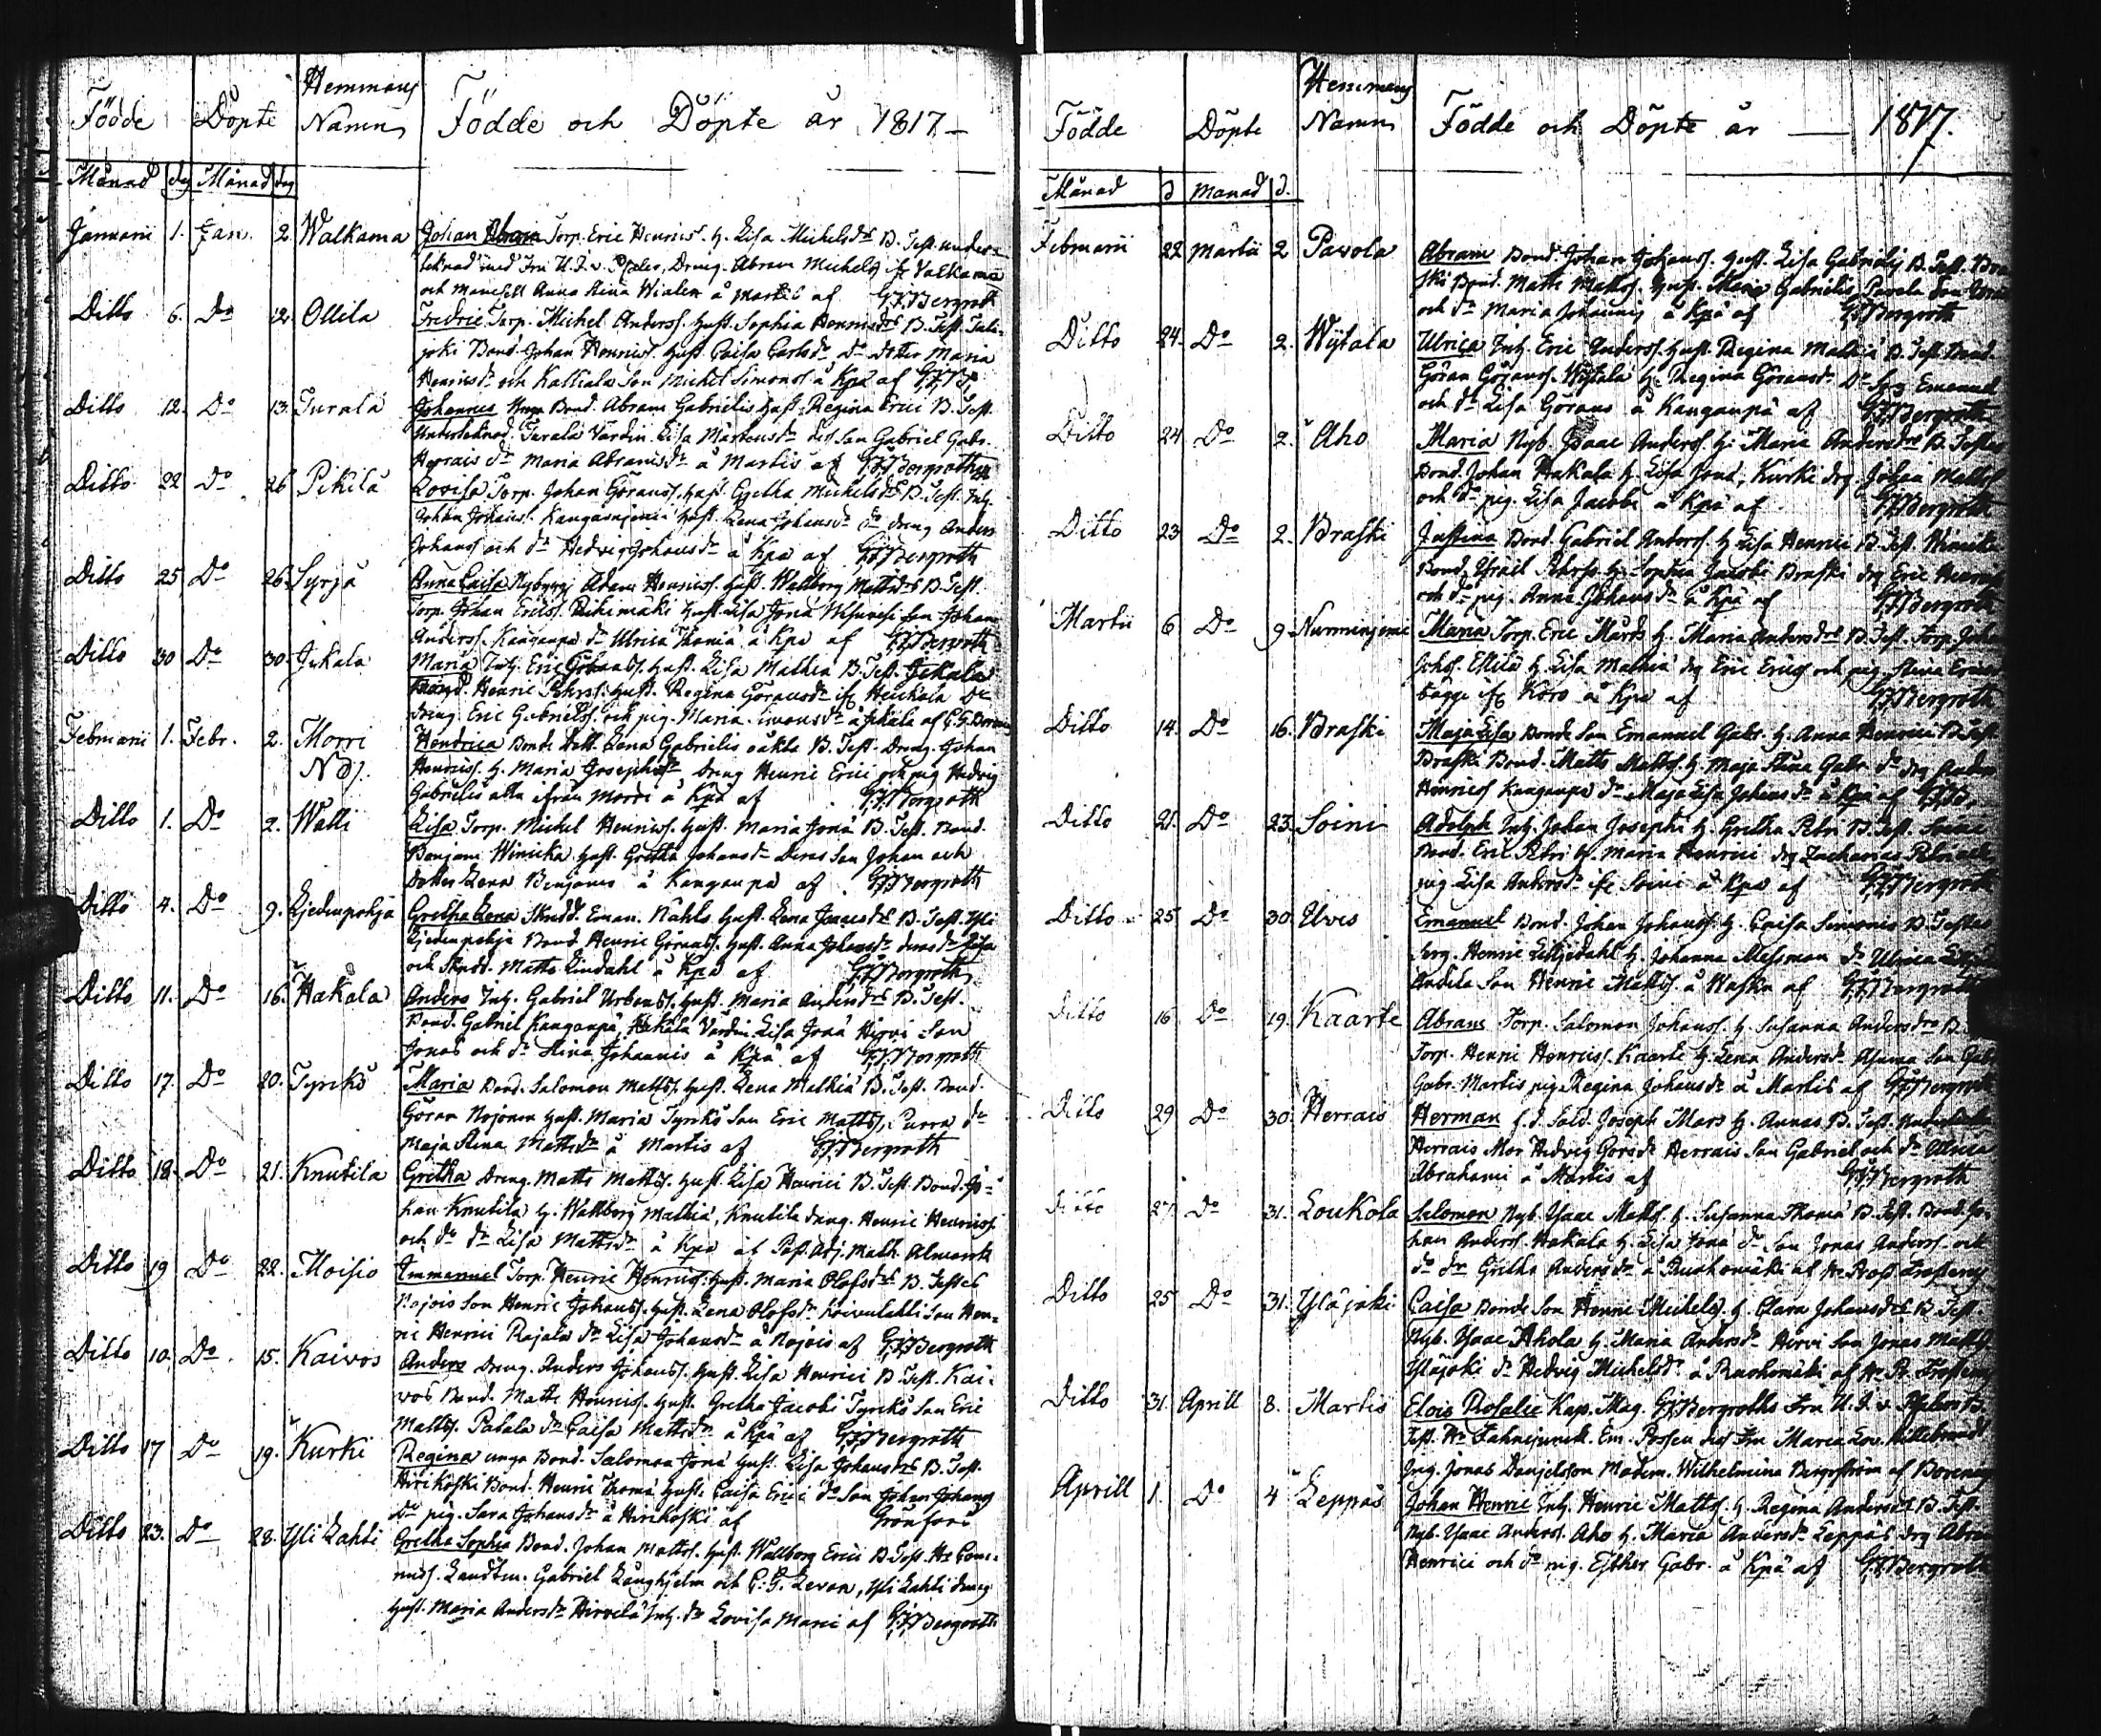 Födde Döpte Hemmans Namn Födde och Döpte år 1817
Månad dag Månad dag
Januarii 1. Jan. 2. Walkama Johan Abram Torp. Eric Henrics. H. Lisa Michelsdr B. Test. under-
teknad med Fru U. J. v. Dreng. Abram Michels fr Valkama
och Mamsell Anna Stina Wialen å Martis af GFBergroth
Ditto 6. Do 12 Ollila Fredric Torp. Michel Anderss. Hust. Sophia Henricsdr B. Test. Juli-
joki Bond. Johan Henricss. Hust. Caisa Carlsdr Do dotter Maria
Henricsdr och Kallialа Son Michel Simonss å Kpä af GFB.
Ditto 12. Do 13. Turala Johannes unga Bond. Abram Gabrielis Hust. Regina Erici B. Test.
Underteknad. Turala Värdin. Lisa Mårtensdr des Son Gabriel Gabr.
Herrais dr Maria Abramsdr å Martis af GFBergroth
Ditto 22 Do 26 Pikilä Lovisa Torp. Johan Göranss. Hust. Gretha Michelsdr B. Test. Inh.
Johan Johanss. Kangasniemi Hust. Lena Johansdr Do dreng Anders
Johanss och dr Hedvig Johansdr å Kpä af GFBergroth
Ditto 25 Do 26. Syrjä Anna Caisa Nybygg. Adam Henricss. Hust. Wallborg Mattsdr B. Test.
Torp. Johan Ericss. Riihimäki Hust. Lisa Jona Son Johan
Anderss. Kanganpä dr Ulrica Thomä å Kpä af GFBergroth
Ditto 30 Do 30. Jckala Maria Inh. Eric Hust. Lisa Mathiä B. Test. Jckala
Bond. Henric Pehrss. Hust. Regina Göransdr Heickola Do
dreng. Eric Gabrielss. och pig. Maria Simonsdr å Jckala af
Februarii 1. Febr. 2. Morri Hendrica Bonde dott. Lena Gabrielis oäkta B. Test. Dreng. Johan
Ndj. Henricss. H. Maria Josephsdr Dreng Henric Erici och pig Hedvig
Gabrielis alla ifrån Morri å Kpä af GFBergroth
Ditto 1. Do 2. Walli Lisa Torp. Michel Henricss. Hust. Maria Jona B. Test. Bond.
Benjam. Winicka Hust. Gretha Johansdr Deras Son Johan och
dotter Lena Benjams å Kanganpä af GFBergroth
Ditto 4. Do 9. Ljedenpohja Gretha Lena Skrädd. Eman. Hust. Lena Isaacsdr B. Test. Yli
Ljedenpohja Bond Henric Göranss. Hust. Anna Johansdr deras dr Lisa
och Skrädd. Matts Lindahl å Kpä af GFBergroth
Ditto 11. Do 16. Hakala Anders Inh. Gabriel Urbanss. Hust. Maria Andersdr B. Test.
Bond. Gabriel Kanganpä, Hakala Värdin. Lisa Jona Hirvi Son
Jonas och dr Stina Johannis å Kpä af GFBergroth
Ditto 17. Do 20. Tyrikö Maria Bond. Salomon Mattss. Hust. Lena Mathiä B. Test. Bond.
Göran Nojonen Hust. Maria Tyrikö Son Eric Mattss, Purra dr
Maja Stina Mattsdr å Martis af GFBergroth
Ditto 18. Do 21. Knutila Gretha Dreng. Matts Mattss. Hust. Lisa Henrici B. Test. Bond. Jo-
han Knutila H. Wallborg Mathiä, Knutila dreng. Henric Henricss
och dr dr Lisa Mattsdr å Kpä af Past. Adj. Math. Almark
Ditto 19 Do 22. Moisio Immanuel Torp. Henric Henricss. Hust. Maria Olofsdr B. Testes
Nojois Son Henric Johanss. Hust. Lena Olofsdr Koivulahti Son Hen-
ric Henrici Rajala dr Lisa Johansdr å Nojois af GFBergroth
Ditto 10. Do 15. Kaivos Anders Dreng. Anders Johanss. Hust. Lisa Henrici B. Test. Kai-
vos Bond. Matts Henricss. Hust. Gretha Jacobi Tyrikö Son Eric
Mattss. Patala dr Caisa Mattsdr å Kpä af GFBergroth
Ditto 17 Do 19. Kurki Regina unga Bond. Salomon Jona Hust. Lisa Johansdr B. Test.
Hirikoski Bond. Henric Thomä Hust. Caisa Erici do Son Johan Johanss
Do pig. Sara Johansdr å Hirikoski af Grönfors
Ditto 23. Do 28. Yli Lahti Gretha Sophia Bond. Johan Mattss. Hust. Wallborg Erici B. Test. Hr Com-
miss. Landtm. Gabriel Långhjelm och C. G. Levon, Yli Lahti dreng
Hust. Maria Andersdr Hirvelä Inh. dr Lovisa Marci af GFBergroth
Födde Döpte Hemmans Namn Födde och Döpte år 1817.
Månad d Månad d.
Februarii 22 Martii 2 Pavola Abram Bond. Johan Johanss. Hust. Lisa Gabrielis B. Test. Bra-
ski Bond. Matts Mattss. Hust. Maria Gabrielis Pavola Son
och dr Maria Johannis å Kpä af GFBergroth
Ditto 24. Do 2. Wytala Ulrica Inh. Eric Anderss. Hust. Regina Mathiä B. Test. Bond.
Göran Göranss. Wytala H. Regina Göransdr Do Son Emanuel
och dr Lisa Görans å Kanganpä af GFBergroth
Ditto 24 Do 2. Aho Maria Nyb. Isaac Anderss. H. Maria Andersdr B. Testes
Bond. Johan Hakala H. Lisa Jona, Kurki drg. Johan Mattss
och dr pig. Lisa Jacobi å Kpä af GFBergroth
Ditto 23 Do 2. Braski Justina Bond. Gabriel Anderss. H Lisa Henrici B. Test. Winicka
Bond. Israel Pehrss. H. Sophia Jacobi Braski drg Eric Henricss
och dr pig. Anna Johansdr å Kpä af GFBergroth
Martii 6 Do 9. Nurminjemi Maria Torp. Eric Mårts H. Maria Andersdr B. Test. Torp. Johan
Johss. Ellilä H Lisa Mathiä drg Eric Ericss och pig Maria
bägge ifr Koro å Kpä af GFBergroth
Ditto 14. Do 16. Braski Maja Lisa Bonde Son Emanuel Gabr. H. Anna Henrici B. Test.
Braski Bond. Matts Mattss. H. Maja Stina Gabr. dr drg Anders
Henricss Kanganpä dr Maja Lisa Johansdr å Kpä af GFB.
Ditto 21. Do 23. Soini Adolph Inh. Johan Josephi H. Gretha Petri B. Test. Soini
Bond. Eric Petri H. Maria Henrici drg Zacharias Petri och
pig Lisa Andersdr ifr Soini å Kpä af GFBergroth
Ditto 25 Do 30. Uvis Emanuel Bond. Johan Johanss. H. Caisa Simonis B. Testes
Serg. Henric Liljedahl H. Johanna Messman dr Ulrica
Andila Son Henric Mattss. å Waskia af GFBergroth
Ditto 16 Do 19. Kaarte Abram Torp. Salomon Johanss. H. Susanna Andersdr B.
Torp. Henric Henricss. Kaarte H. Lena Andersdr Asuma Son Gabr.
Gabr. Martis pig Regina Johansdr å Martis af GFBergroth
Ditto 29 Do 30. Herrais Herman f. d. Sold. Joseph Mars H. Annas B. Test.
Herrais Mor Hedvig Görsdr Herrais Son Gabriel och dr Ulrica
Abrahami å Martis af GFBergroth
Ditto 27. Do 31. Loukola Salomon Nyb. Isaac Mattss. H. Susanna Thomä B. Test. Bond. Jo-
han Anderss. Hakala H. Lisa Jona dr Son Jonas Anderss. och
do dr Gretha Andersdr å Ruohomäki af Hr Prost Frosterus
Ditto 25 Do 31. Yläjoki Caisa Bonde Son Henric Michelss. H. Clara Johansdr B. Test.
Nyb. Isaac Ahola H. Maria Andersdr Hirvi Son Jonas Mattss
Yläjoki dr Hedvig Michelsdr å Ruohomäki af Hr Pr. Frosterus
Ditto 31. Aprill 8. Martis Elois Rosalie Kap. Mag. GFBergroths Fru U. J. v. B.
Test. Hr Fahnejunck. Em. Possen des Fru Maria Lov. Hillebrand
Ing. Jonas Danjelsson Madem. Wilhelmina Bergström af Borenius
Aprill 1. Do 4 Leppäs Johan Henric Inh. Henric Mattss. H. Regina Andersdr B. Test.
Nyb. Isaac Anderss. Aho H. Maria Andersdr Leppäs drg Abram
Henrici och dr pig. Esther Gabr. å Kpä af GFBergroth